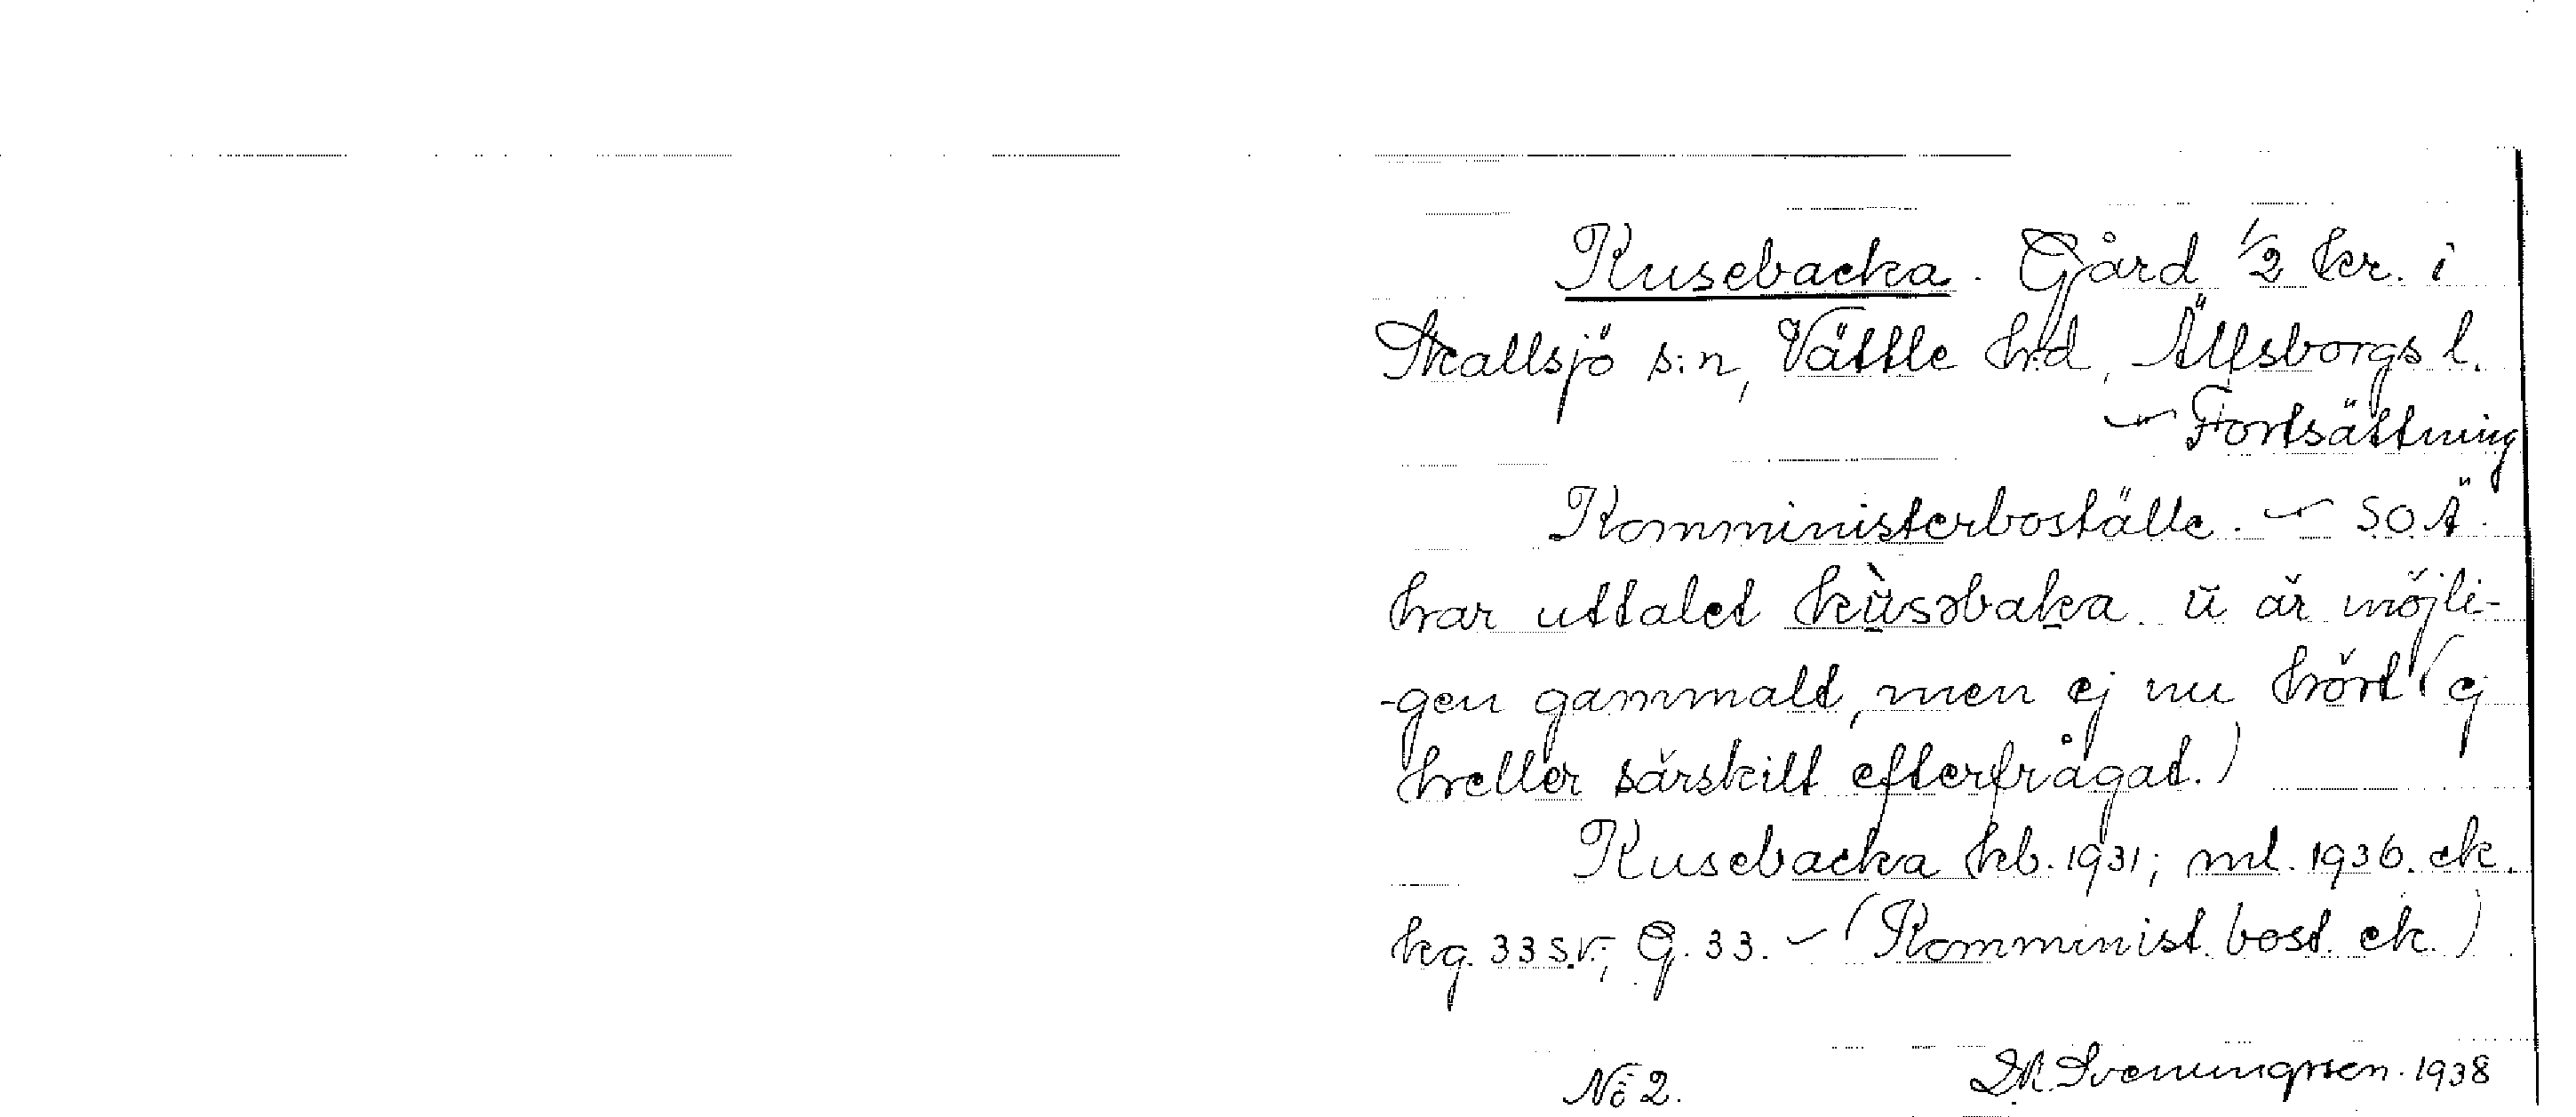 Kusebacka. Gård 1/2 kr. i
Skallsjö s:n, Vättle hd, Älfsborgs l.
— Fortsättning
Komministerboställe. — SOÄ
har uttalet kùsəbaka. ū är möjli-
-gen gammalt, men ej nu hört (ej
heller särskilt efterfrågat.)
Kusebacka kb. 1931; ml. 1936. ek.
kg. 33 s.v.; G. 33. — (Komminist. bost. ek.)
No 2. Sveningsson. 1938